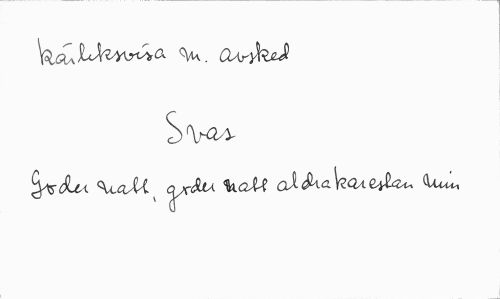 kärleksvisa m. avsked
Svas
Goder natt, goder natt aldrakarestan min